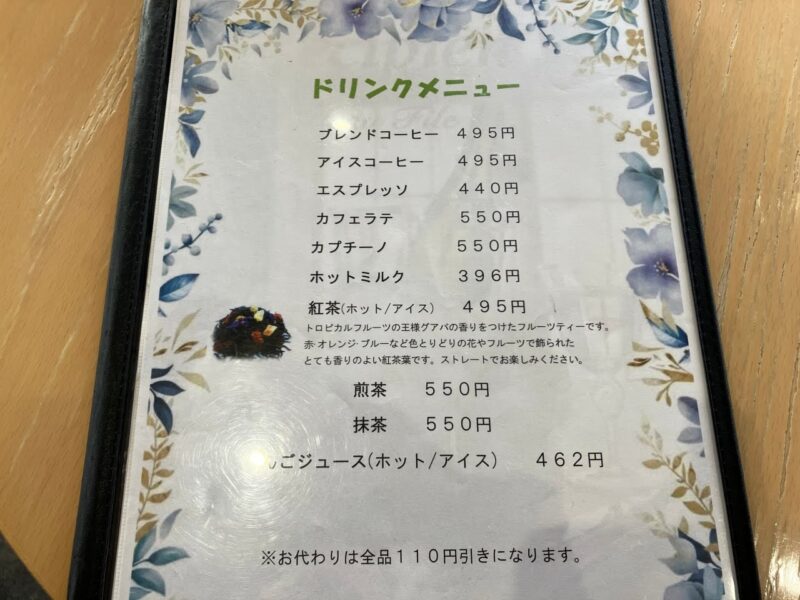 ドリンクメニュー
ブレンドコーヒー　４９５円
アイスコーヒー　４９５円
エスプレッソ　４４０円
カフェラテ　５５０円
カプチーノ　５５０円
ホットミルク　３９６円
紅茶(ホット/アイス)　４９５円
トロピカルフルーツの王様グアバの香りをつけたフルーツティーです。
赤・オレンジ・ブルーなど色とりどりの花やフルーツで飾られた
とても香りのよい紅茶葉です。ストレートでお楽しみください。
煎茶　５５０円
抹茶　５５０円
んごジュース(ホット/アイス)　４６２円
※お代わりは全品１１０円引きになります。